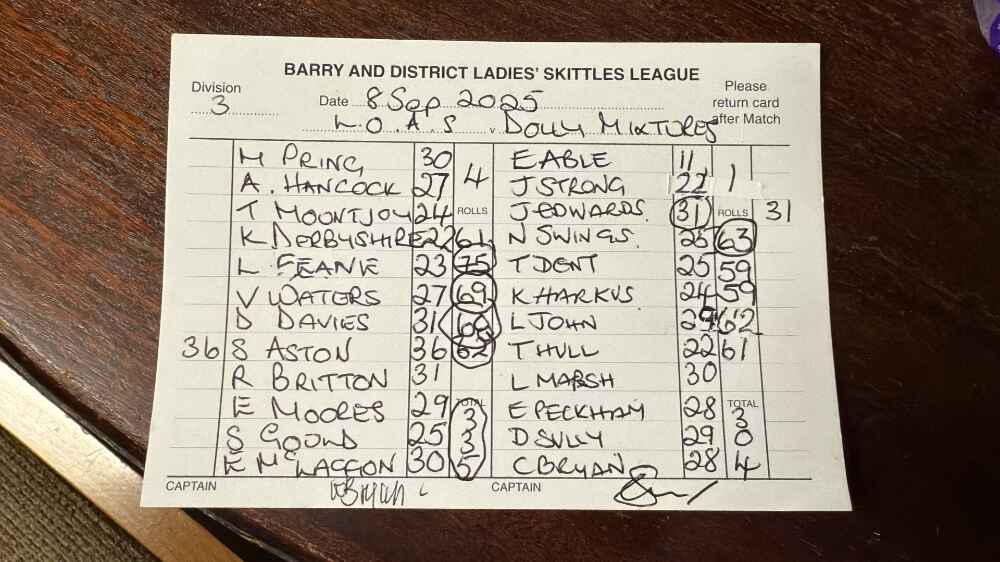 BARRY AND DISTRICT LADIES' SKITTLES LEAGUE
Division 3
Date 8 Sep 2025
Please return card after Match
L.O.A.S v DOLLY MIXTURES
M PRING 30 4 E ABLE 11 1
A. HANCOCK 27 J STRONG 22
T MOONTJOY 24 ROLLS J EDWARDS. 31 ROLLS 31
K DERBYSHIRE 22 61 N SWINGS. 25 63
L FEANE 23 75 T DENT 25 59
V WATERS 27 69 K HARKUS 24 59
D DAVIES 31 68 L JOHN 29 62
36 S ASTON 36 62 T HULL 22 61
R BRITTON 31 L MARSH 30
E MOORES 29 TOTAL 3 E PECKHAM 28 TOTAL 3
S GOUND 25 3 D SULLY 29 0
E McLAGGON 30 5 C BRYAN 28 4
CAPTAIN CBryan CAPTAIN